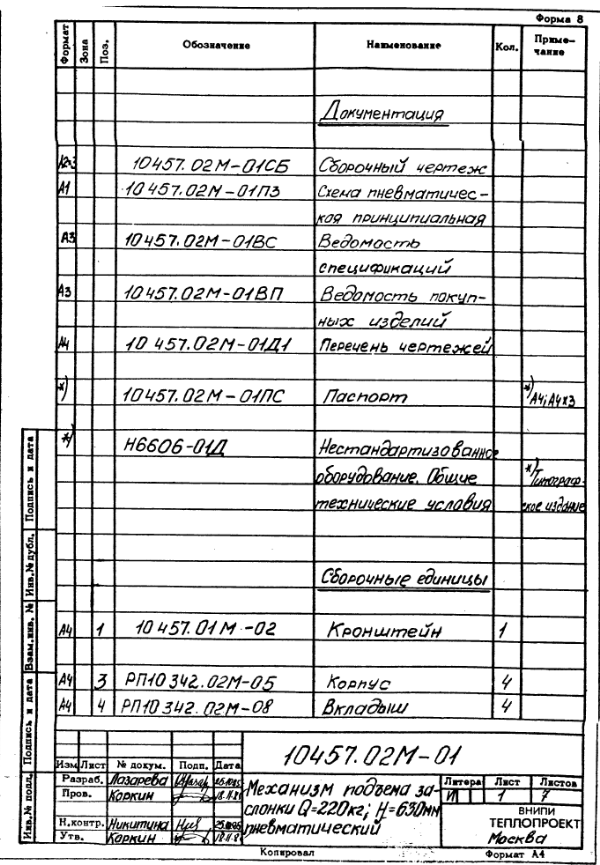 Форма 8
Формат Зона Поз. Обозначение Наименование Кол. Приме-
чание
Документация
10457.02М-01СБ Сборочный чертеж
А1 10457.02М-01П3 Схема пневматичес-
кая принципиальная
А3 10457.02М-01ВС Ведомость
спецификаций
А3 10457.02М-01ВП Ведомость покуп-
ных изделий
А4 10457.02М-01Д1 Перечень чертежей
*) 10457.02М-01ПС Паспорт *)А4; А4х3
*) Н6606-01Д Нестандартизованное
оборудование. Общие *)Типограф-
технические условия ское издание
Сборочные единицы
А4 1 10457.01М-02 Кронштейн 1
А4 3 РП10342.02М-05 Корпус 4
А4 4 РП10342.02М-08 Вкладыш 4
Подпись и дата
Инв.№ дубл.
Взам.инв. №
Подпись и дата
Инв.№ подл.
10457.02М-01
Изм Лист № докум. Подп. Дата
Разраб. Лазарева
Пров. Коркин
Н.контр. Никитина
Утв. Коркин
Механизм подъема за-
слонки Q=220кг; H=630мм
пневматический
Литера Лист Листов
И 1 7
ВНИПИ
ТЕПЛОПРОЕКТ
Москва
Копировал Формат А4